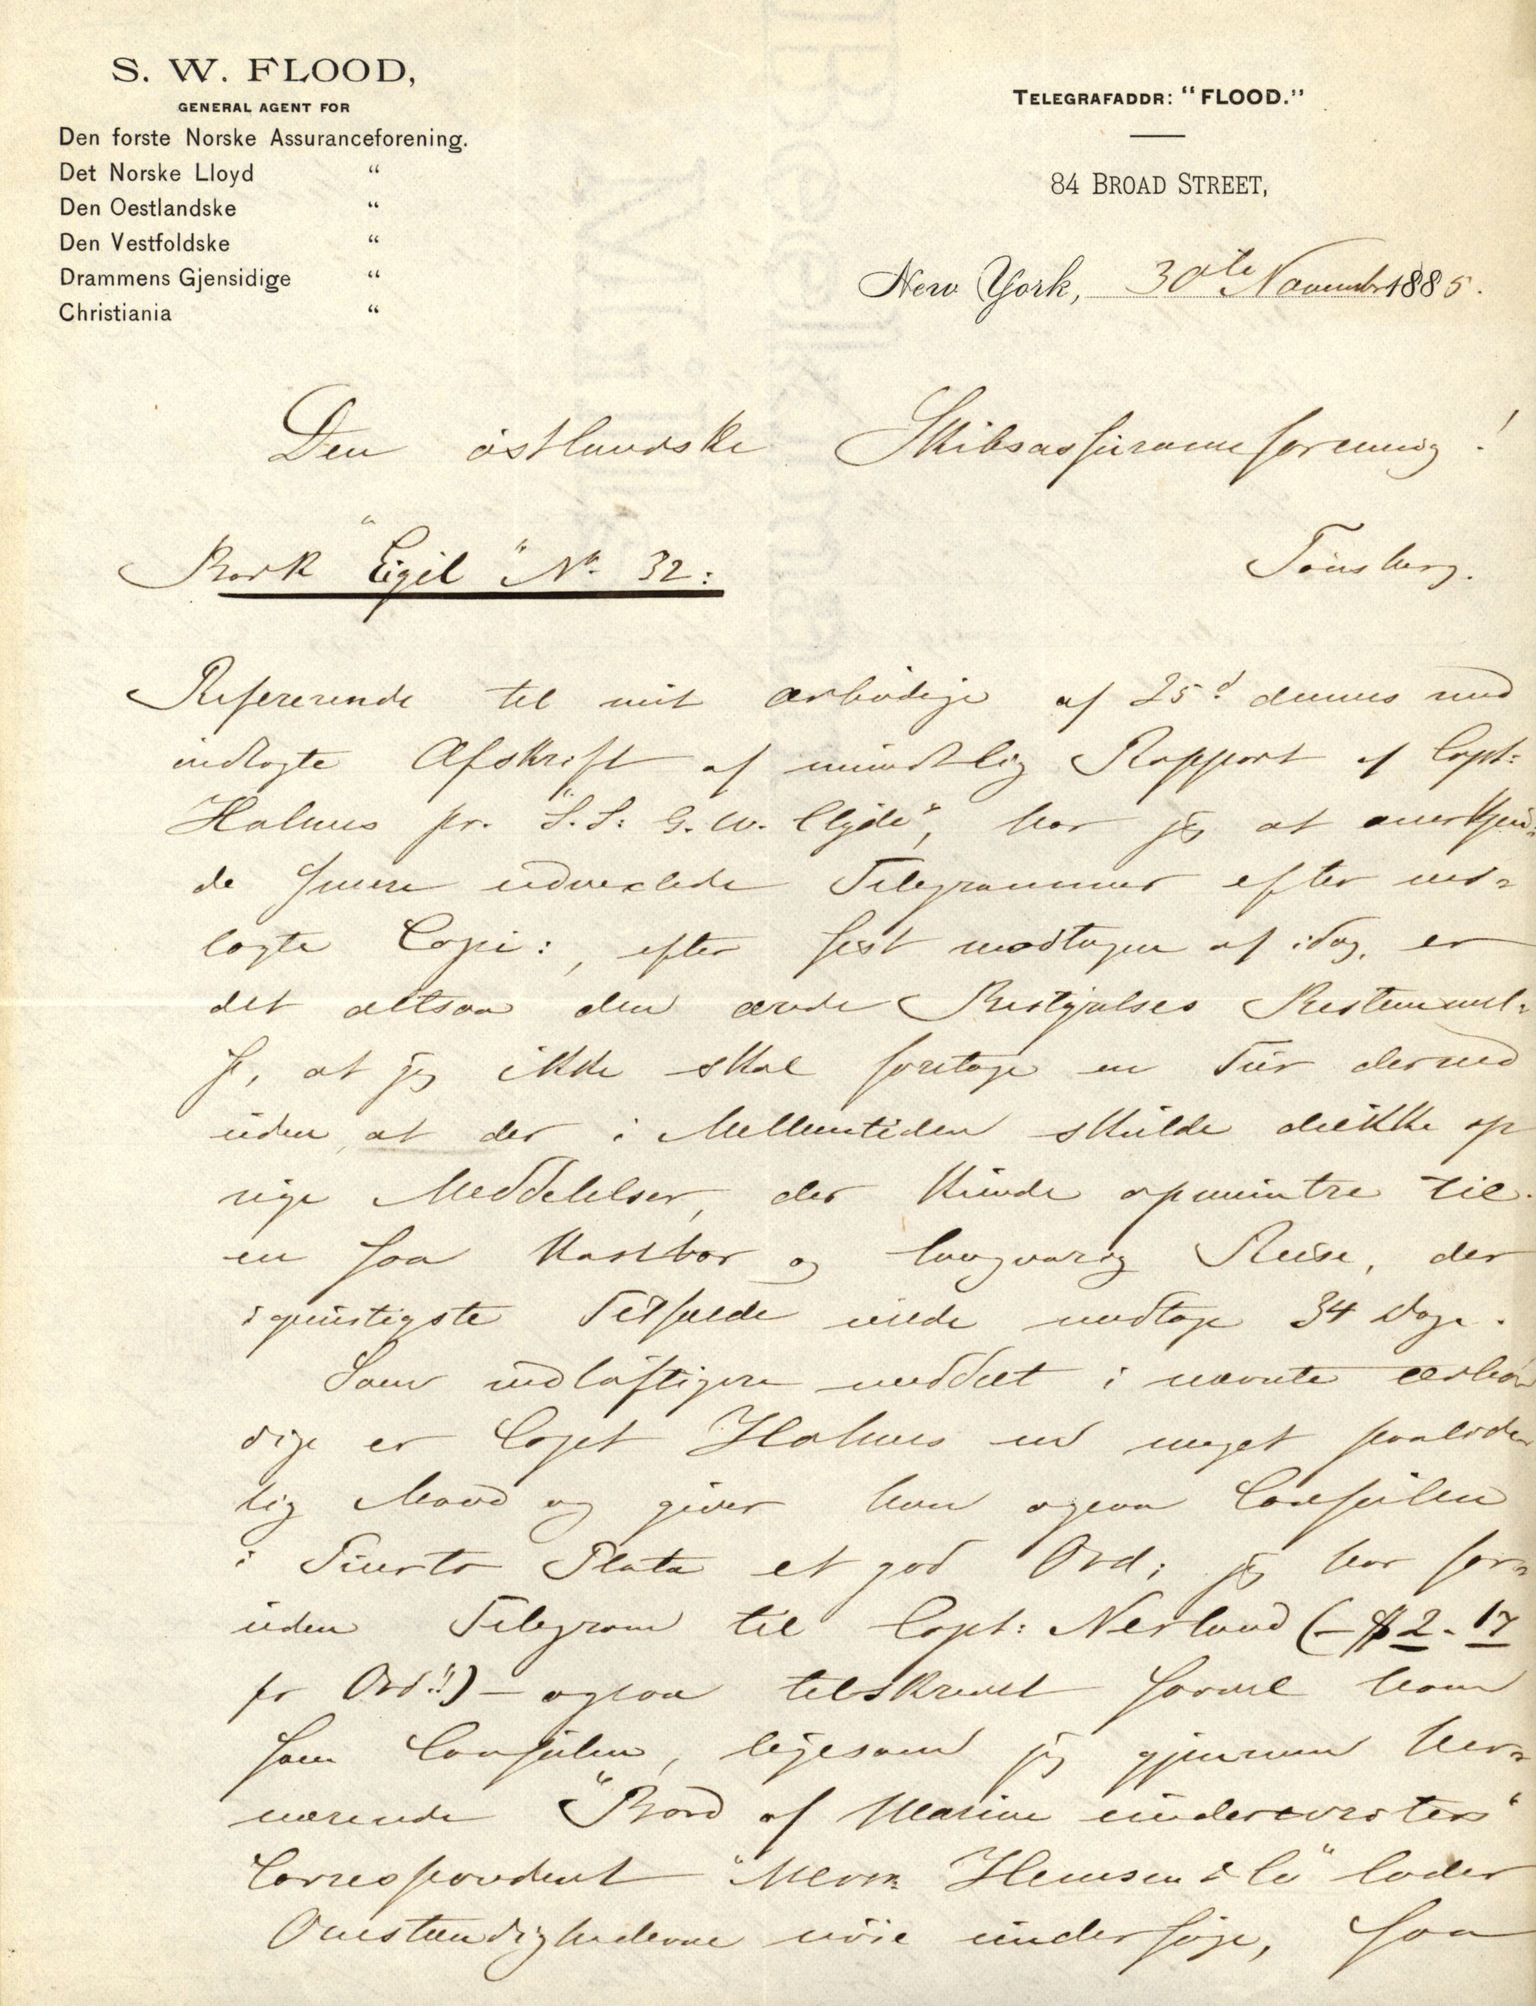 S. W. FLOOD,
GENERAL AGENT FOR
Den forste Norske Assuranceforening.
Det Norske Lloyd "
Den Oestlandske "
Den Vestfoldske "
Drammens Gjensidige "
Christiania "
TELEGRAFADDR: "FLOOD."
84 BROAD STREET,
New York, 30te November 1885.
Den östlandske Skibsassuranceforening!
Tönsberg.
Bark "Eigil" No. 32:
Refererende til mit ærbödige af 25d dennes med
indlagte Afskrift af mundtlig Rapport af Capt:
Holmes pr. "S.S: G. W. Clyde", har jeg at anerkjen-
de senere udvexlede Telegrammer efter ved-
lagte Copi:, efter sist modtagen af idag, er
det altsaa den ærede Bestyrelses Bestemmel-
se, at jeg ikke skal foretage en Tur derned
uden at der i Mellemtiden skulde dukke op
nye Meddelelser, der kunde opmuntre til
en saa kostbar og langvarig Reise, der
i gunstigste Tilfælde vilde medtage 34 Dage.
Som udlöftigere meddelt i nævnte ærbö-
dige er Capt Holmes en meget paalide-
lig Mand og giver han ogsaa Consulen
i Puerto Plata et god Ord; jeg har for-
uden Telegram til Capt: Nerlund (- $2.17
pr Ord!!) - ogsaa tilskrevet saavel ham
som Consulen, ligesom jeg gjennem her-
værende "Bord af Marine underwriters"
Correspondent "Messrs Hemsen & Co" lader
Omstændighederne nöie undersöge, saa